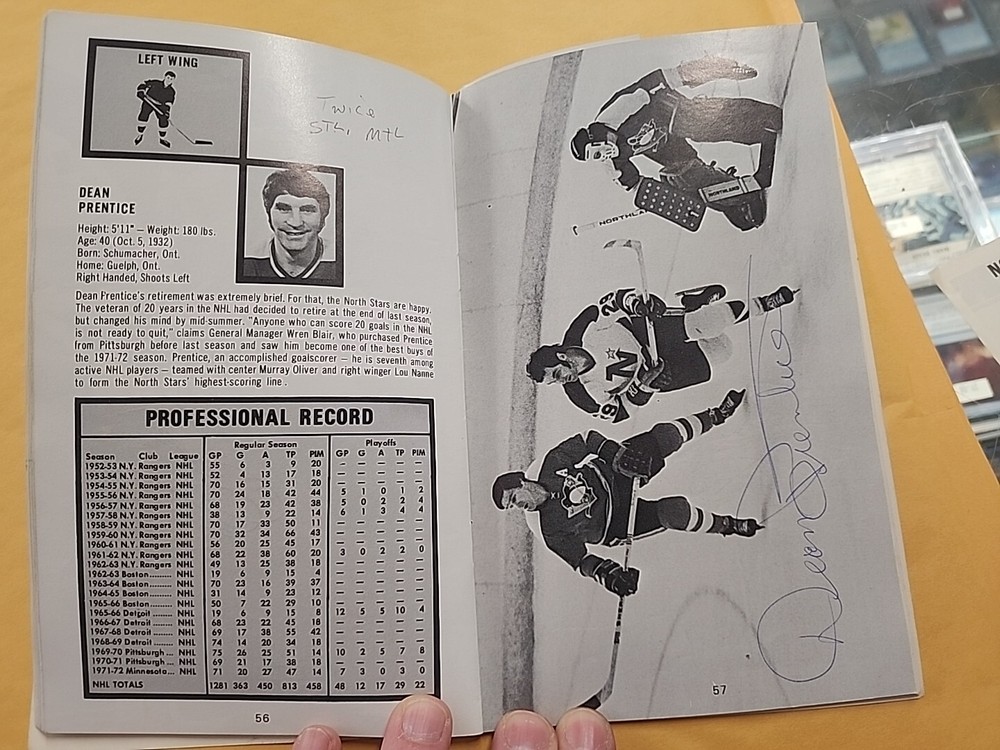 LEFT WING
Twice
STL, MTL
DEAN
PRENTICE
Height: 5'11" — Weight: 180 lbs.
Age: 40 (Oct. 5, 1932)
Born: Schumacher, Ont.
Home: Guelph, Ont.
Right Handed, Shoots Left
Dean Prentice's retirement was extremely brief. For that, the North Stars are happy.
The veteran of 20 years in the NHL had decided to retire at the end of last season,
but changed his mind by mid-summer. "Anyone who can score 20 goals in the NHL
is not ready to quit," claims General Manager Wren Blair, who purchased Prentice
from Pittsburgh before last season and saw him become one of the best buys of
the 1971-72 season. Prentice, an accomplished goalscorer — he is seventh among
active NHL players — teamed with center Murray Oliver and right winger Lou Nanne
to form the North Stars' highest-scoring line.
PROFESSIONAL RECORD
Regular Season Playoffs
Season Club League GP G A TP PIM GP G A TP PIM
1952-53 N.Y. Rangers NHL 55 6 3 9 20 — — — — —
1953-54 N.Y. Rangers NHL 52 4 13 17 18 — — — — —
1954-55 N.Y. Rangers NHL 70 16 15 31 20 — — — — —
1955-56 N.Y. Rangers NHL 70 24 18 42 44 5 1 0 1 2
1956-57 N.Y. Rangers NHL 68 19 23 42 38 5 0 2 2 4
1957-58 N.Y. Rangers NHL 38 13 9 22 14 6 1 3 4 4
1958-59 N.Y. Rangers NHL 70 17 33 50 11 — — — — —
1959-60 N.Y. Rangers NHL 70 32 34 66 43 — — — — —
1960-61 N.Y. Rangers NHL 56 20 25 45 17 — — — — —
1961-62 N.Y. Rangers NHL 68 22 38 60 20 3 0 2 2 0
1962-63 N.Y. Rangers NHL 49 13 25 38 18 — — — — —
1962-63 Boston......... NHL 19 6 9 15 4 — — — — —
1963-64 Boston......... NHL 70 23 16 39 37 — — — — —
1964-65 Boston......... NHL 31 14 9 23 12 — — — — —
1965-66 Boston......... NHL 50 7 22 29 10 — — — — —
1965-66 Detroit........ NHL 19 6 9 15 8 12 5 5 10 4
1966-67 Detroit........ NHL 68 23 22 45 18 — — — — —
1967-68 Detroit........ NHL 69 17 38 55 42 — — — — —
1968-69 Detroit........ NHL 74 14 20 34 18 — — — — —
1969-70 Pittsburgh... NHL 75 26 25 51 14 10 2 5 7 8
1970-71 Pittsburgh... NHL 69 21 17 38 18 — — — — —
1971-72 Minnesota... NHL 71 20 27 47 14 7 3 0 3 0
NHL TOTALS 1281 363 450 813 458 48 12 17 29 22
56
NORTHLAND
NORTHLAND
N
19
Dean Prentice
57